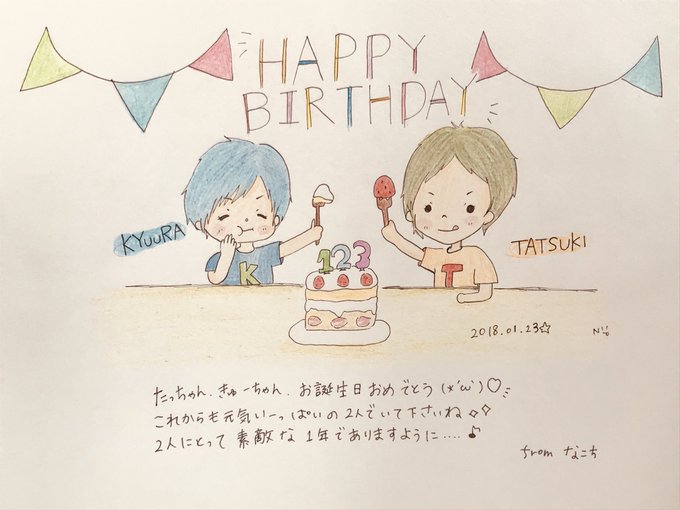 HAPPY
BIRTHDAY
KYUURA
TATSUKI
K
T
123
2018.01.23☆
たっちゃん、きゅーちゃん、お誕生日おめでとう(*'ω`)♡
これからも元気いーっぱいの2人でいて下さいね✧✧
2人にとって素敵な1年でありますように....♪
from なこち